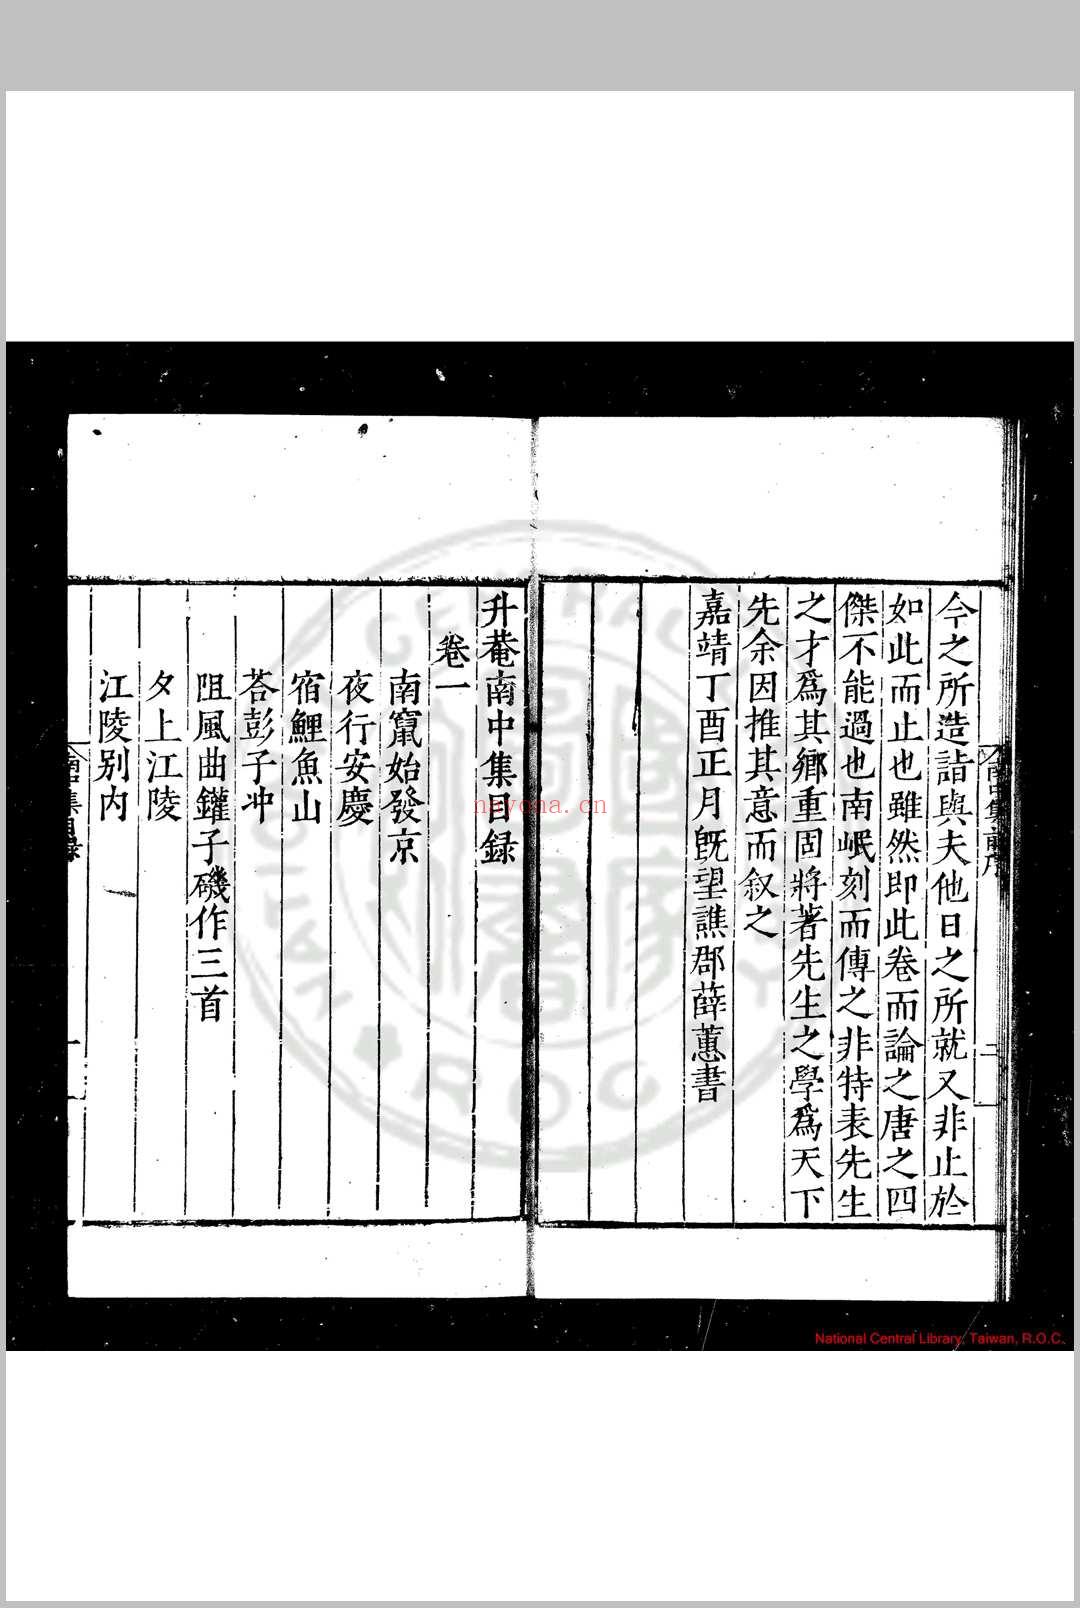 今之所造詣與夫他日之所就又非止於
如此而止也雖然即此卷而論之唐之四
傑不能過也南岷刻而傳之非特表先生
之才爲其鄉重固將著先生之學爲天下
先余因推其意而叙之
嘉靖丁酉正月既望譙郡薛蕙書
升菴南中集目録
卷一
南竄始發京
夜行安慶
宿鯉魚山
荅彭子冲
阻風曲鑵子磯作三首
夕上江陵
江陵别内
南中集目録
一
nayona.cn
National Central Library, Taiwan, R.O.C.